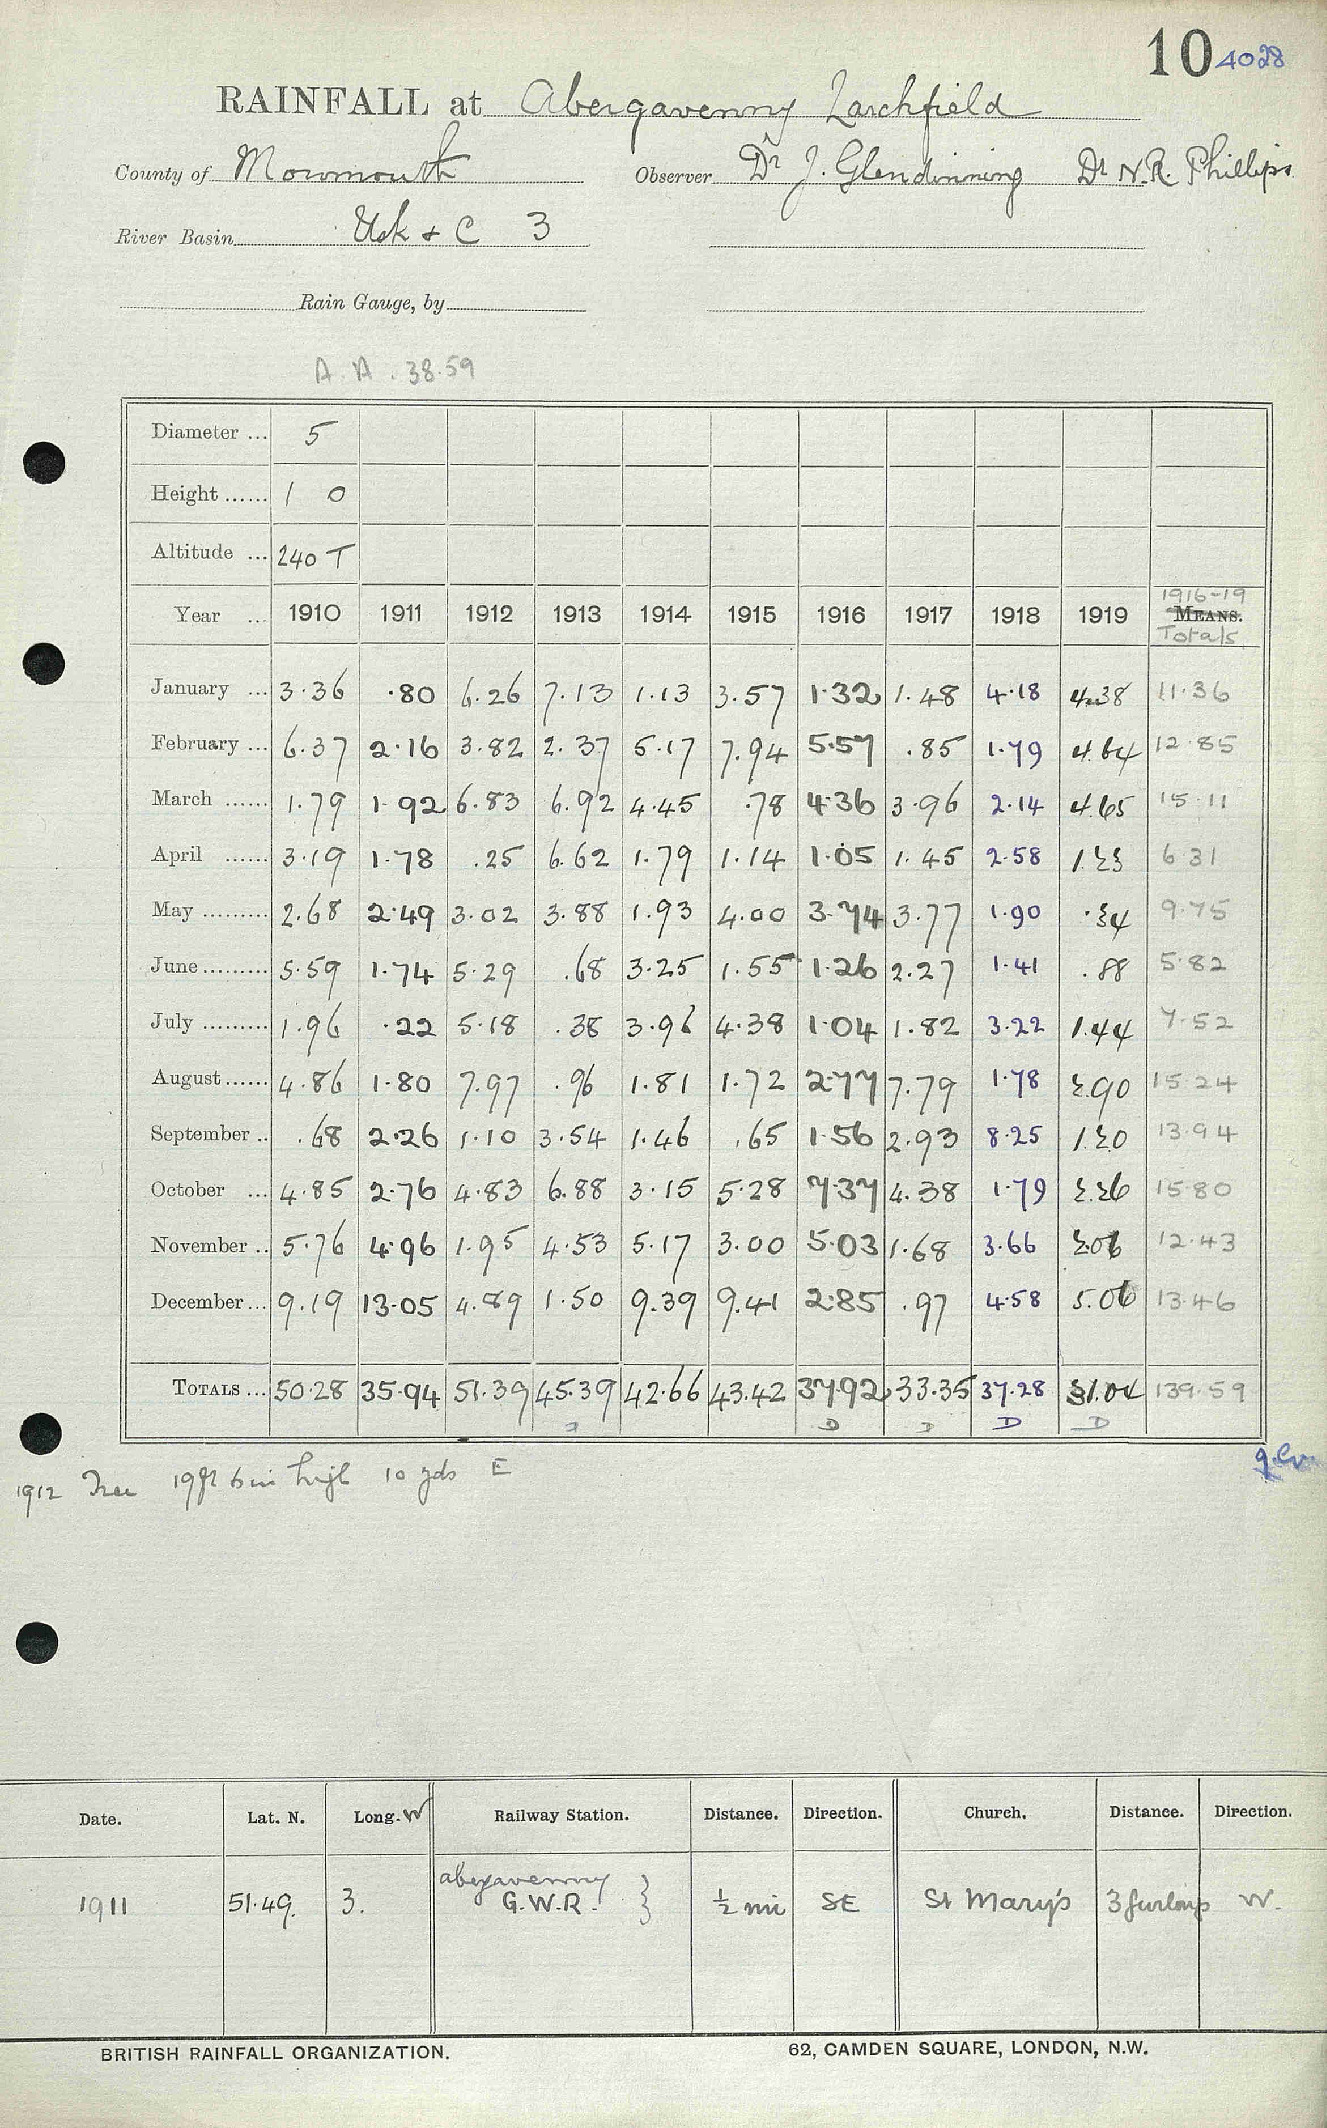 10 4028
RAINFALL at Abergavenny Larchfield
County of Monmouth Observer Dr J. Glendinning Dr N.R. Phillips
River Basin Usk + C 3
Rain Gauge, by
A.A. 38.59
Diameter ... 5
Height ...... 1 0
Altitude ... 240 T
Year ... 1910 1911 1912 1913 1914 1915 1916 1917 1918 1919 1916-19 MEANS. Totals
January ... 3.36 .80 6.26 7.13 1.13 3.57 1.32 1.48 4.18 4.38 11.36
February ... 6.37 2.16 3.82 2.37 5.17 7.94 5.57 .85 1.79 4.64 12.85
March ...... 1.79 1.92 6.83 6.92 4.45 .78 4.36 3.96 2.14 4.65 15.11
April ...... 3.19 1.78 .25 6.62 1.79 1.14 1.05 1.45 2.58 1.23 6.31
May ......... 2.68 2.49 3.02 3.88 1.93 4.00 3.74 3.77 1.90 .34 9.75
June ......... 5.59 1.74 5.29 .68 3.25 1.55 1.26 2.27 1.41 .88 5.82
July ......... 1.96 .22 5.18 .38 3.96 4.38 1.04 1.82 3.22 1.44 7.52
August ...... 4.86 1.80 7.97 .96 1.81 1.72 2.77 7.79 1.78 2.90 15.24
September .. .68 2.26 1.10 3.54 1.46 .65 1.56 2.93 8.25 1.20 13.94
October ... 4.85 2.76 4.83 6.88 3.15 5.28 7.37 4.38 1.79 2.26 15.80
November .. 5.76 4.96 1.95 4.53 5.17 3.00 5.03 1.68 3.66 2.06 12.43
December ... 9.19 13.05 4.89 1.50 9.39 9.41 2.85 .97 4.58 5.06 13.46
TOTALS ... 50.28 35.94 51.39 45.39 42.66 43.42 37.92 33.35 37.28 31.04 139.59
D D D D D
1912 Tree 19ft 6in high 10 yds E
Date. Lat. N. Long. W Railway Station. Distance. Direction. Church. Distance. Direction.
1911 51.49. 3. Abergavenny G.W.R. } ½ mi SE St Mary's 3 furlongs W.
BRITISH RAINFALL ORGANIZATION. 62, CAMDEN SQUARE, LONDON, N.W.